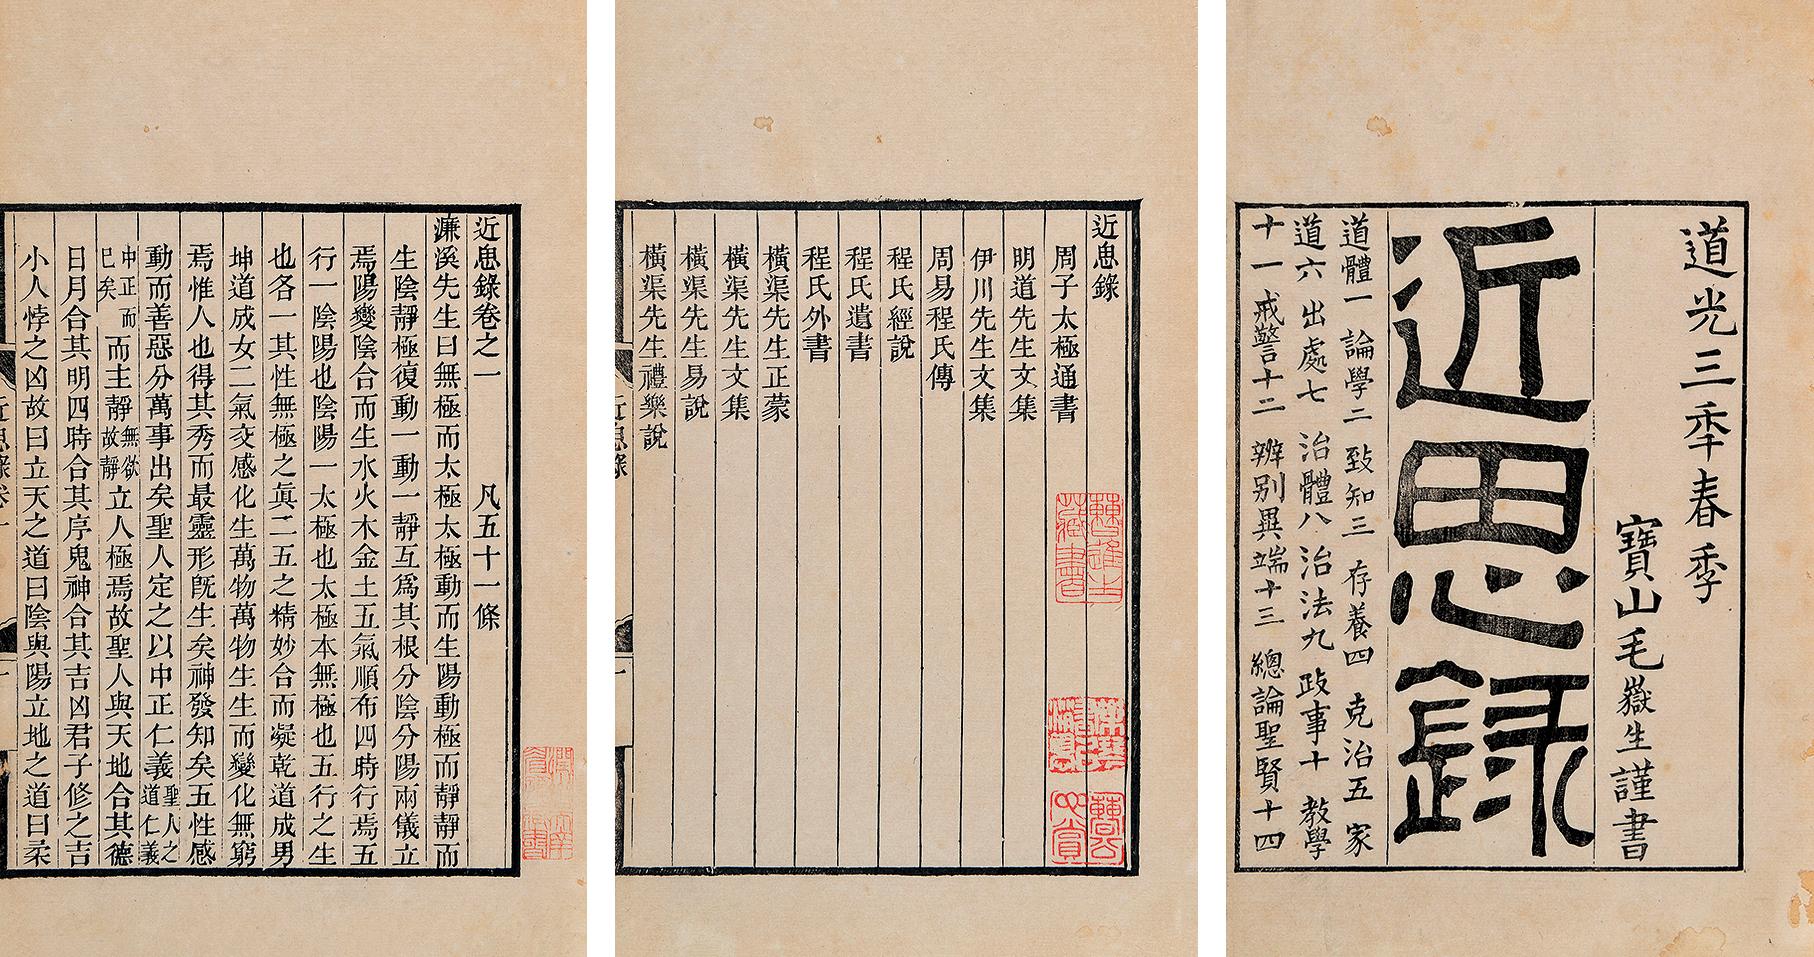 道光三秊春季
寶山毛嶽生謹書
近思錄
道體一 論學二 致知三 存養四 克治五 家
道六 出處七 治體八 治法九 政事十 教學
十一 戒警十二 辨别異端十三 總論聖賢十四
近思錄
周子太極通書
明道先生文集
伊川先生文集
周易程氏傳
程氏經說
程氏遺書
程氏外書
橫渠先生正蒙
橫渠先生文集
橫渠先生易說
橫渠先生禮樂說
近思錄
近思錄卷之一 凡五十一條
濂溪先生曰無極而太極太極動而生陽動極而靜靜而
生陰靜極復動一動一靜互爲其根分陰分陽兩儀立
焉陽變陰合而生水火木金土五氣順布四時行焉五
行一陰陽也陰陽一太極也太極本無極也五行之生
也各一其性無極之眞二五之精妙合而凝乾道成男
坤道成女二氣交感化生萬物萬物生生而變化無窮
焉惟人也得其秀而最靈形旣生矣神發知矣五性感
動而善惡分萬事出矣聖人定之以中正仁義聖人之道仁義
中正而已矣而主靜無欲故靜立人極焉故聖人與天地合其德
日月合其明四時合其序鬼神合其吉凶君子修之吉
小人悖之凶故曰立天之道曰陰與陽立地之道曰柔
近思錄卷一